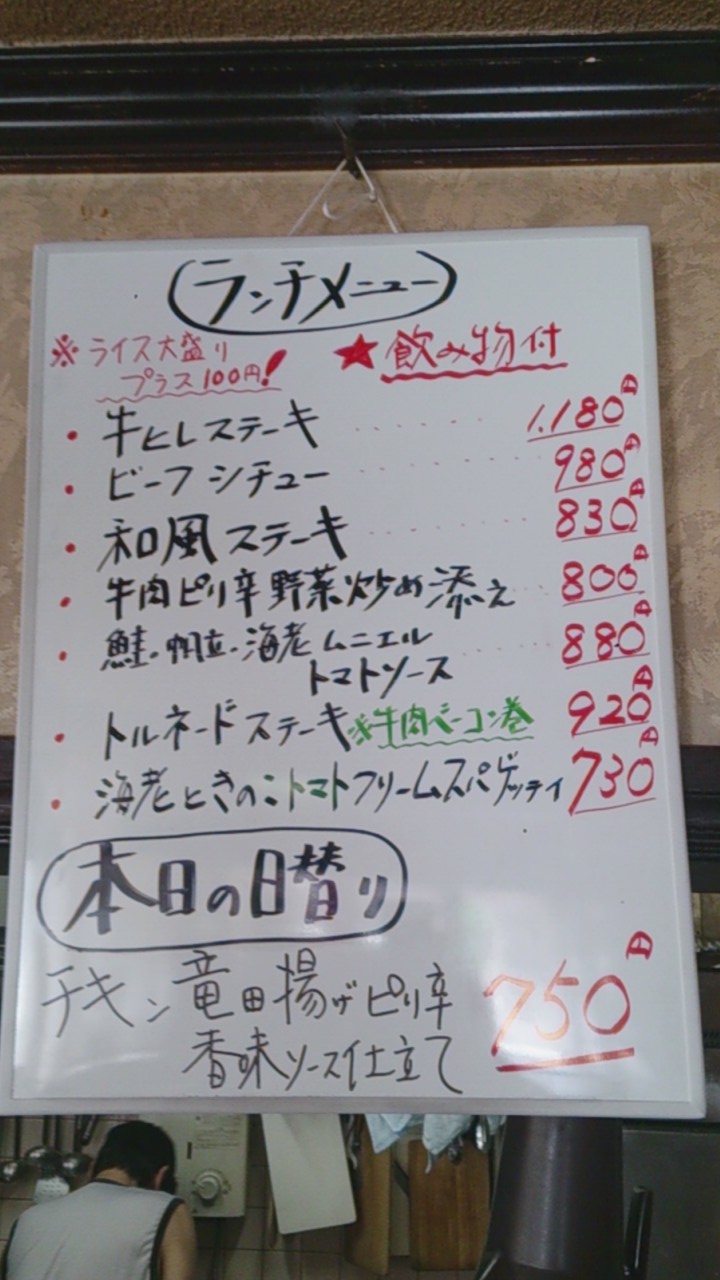 ランチメニュー
※ライス大盛り
プラス100円!
★飲み物付
・牛ヒレステーキ ……… 1,180円
・ビーフシチュー ……… 980円
・和風ステーキ ……… 830円
・牛肉ピリ辛野菜炒め添え … 800円
・鮭・帆立・海老ムニエル …… 880円
トマトソース
・トルネードステーキ※牛肉ベーコン巻 920円
・海老ときのこトマトクリームスパゲッティ 730円
本日の日替り
チキン竜田揚げピリ辛
香味ソース仕立て
750円